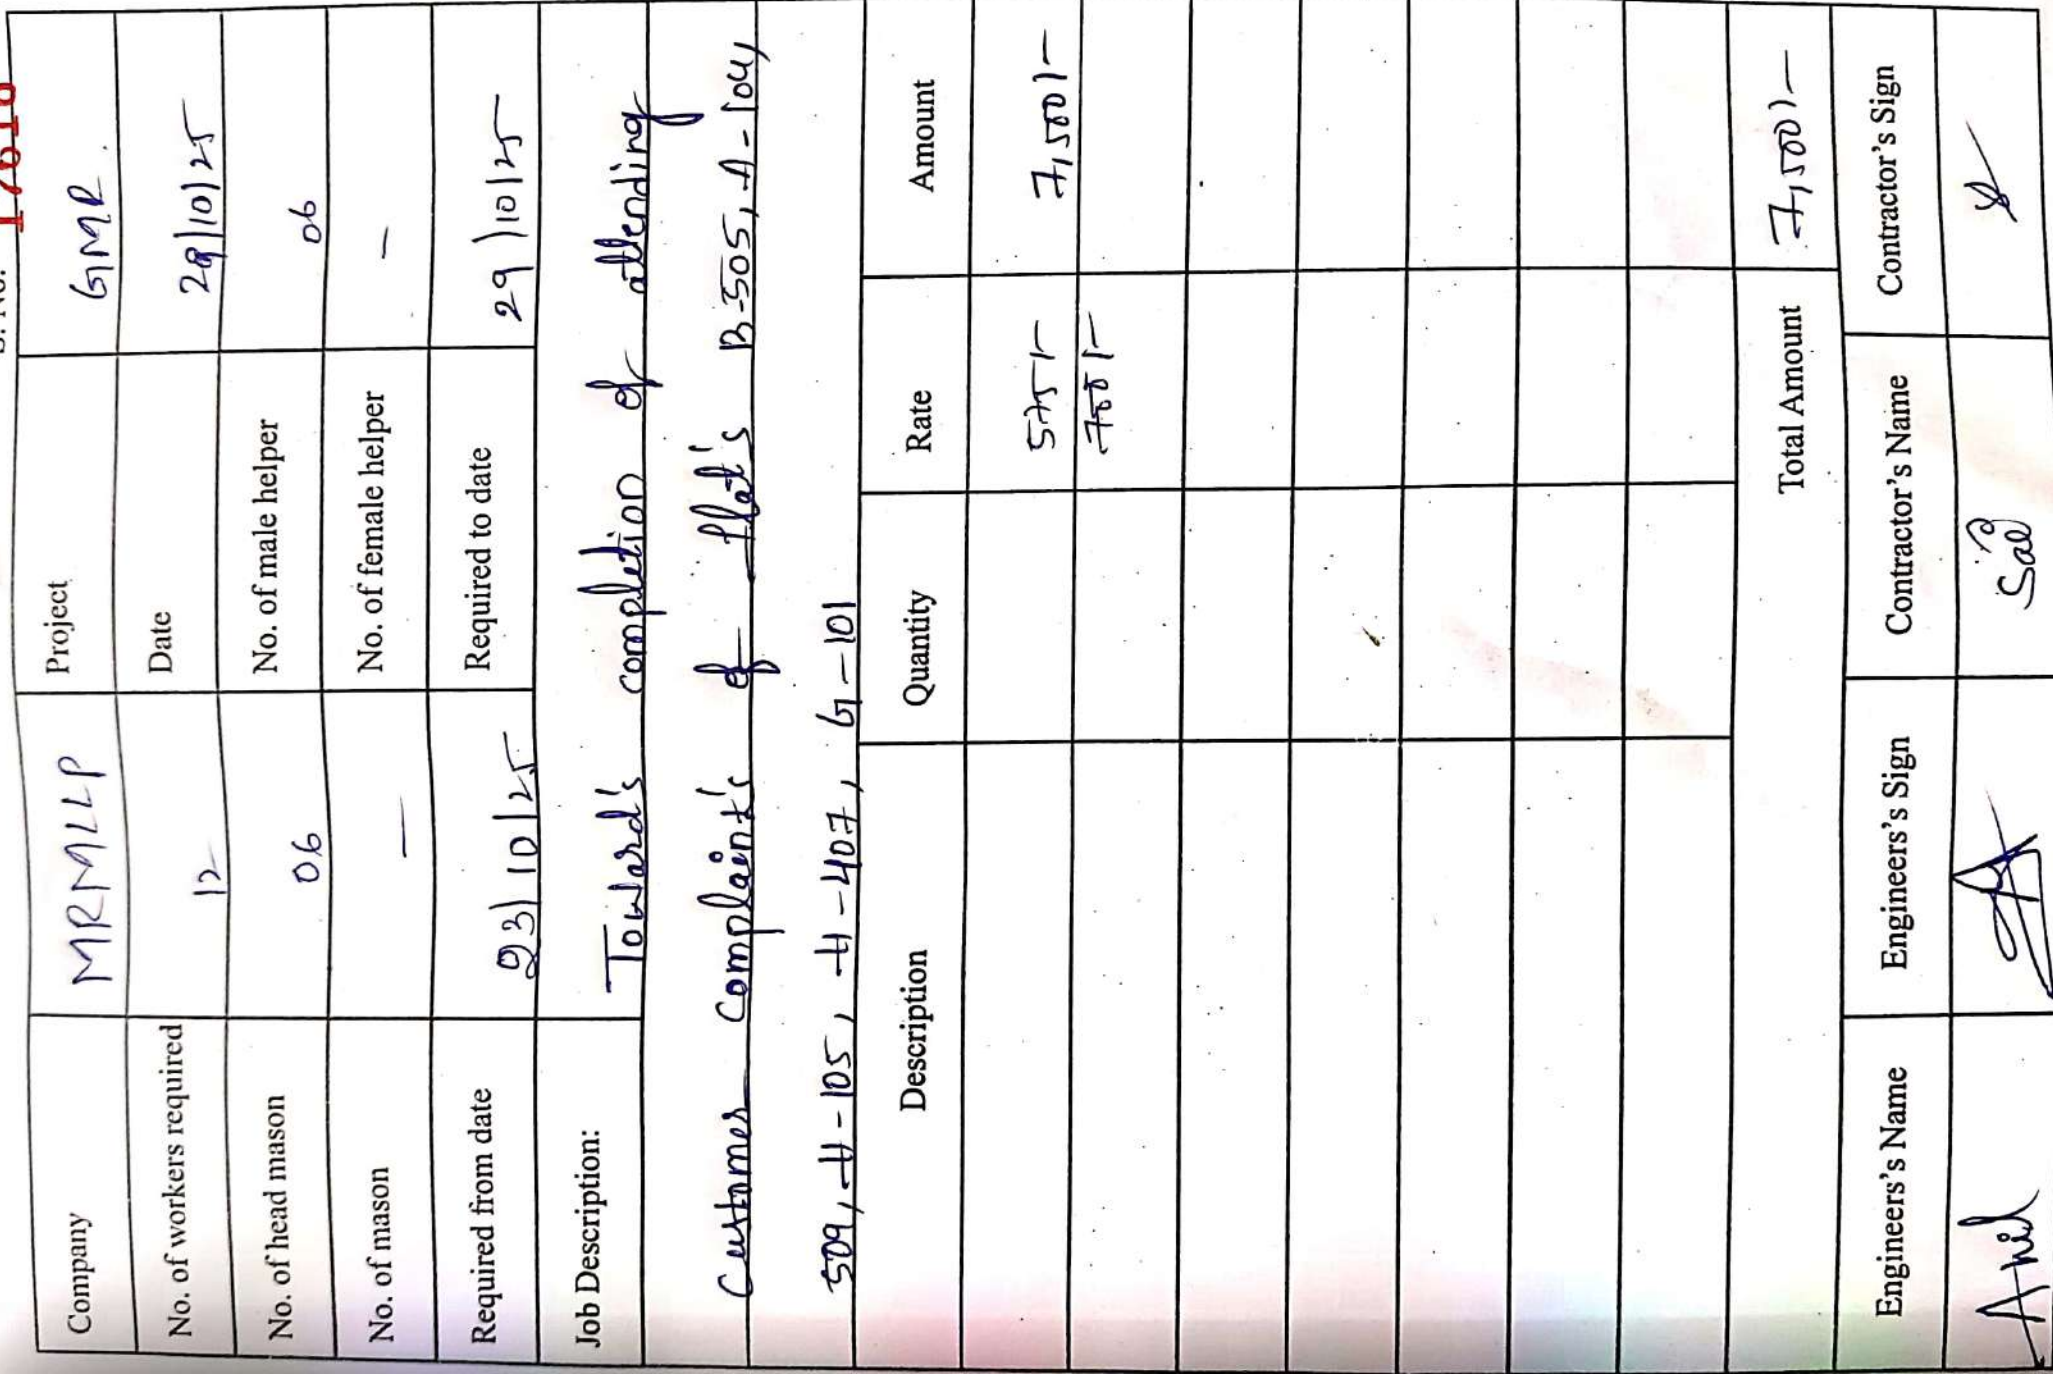 S. No.
Company MRMLLP Project GMR.
No. of workers required 12 Date 29/10/25
No. of head mason 06 No. of male helper 06
No. of mason — No. of female helper —
Required from date 23/10/25 Required to date 29/10/25
Job Description: Toward's completion of attending
Customer Complaint's of flat's B-505, A-104,
509, H-105, H-407, G-101
Description Quantity Rate Amount
575/- 7,500/-
700/-
Total Amount 7,500/-
Engineers's Name Engineers's Sign Contractor's Name Contractor's Sign
Anil